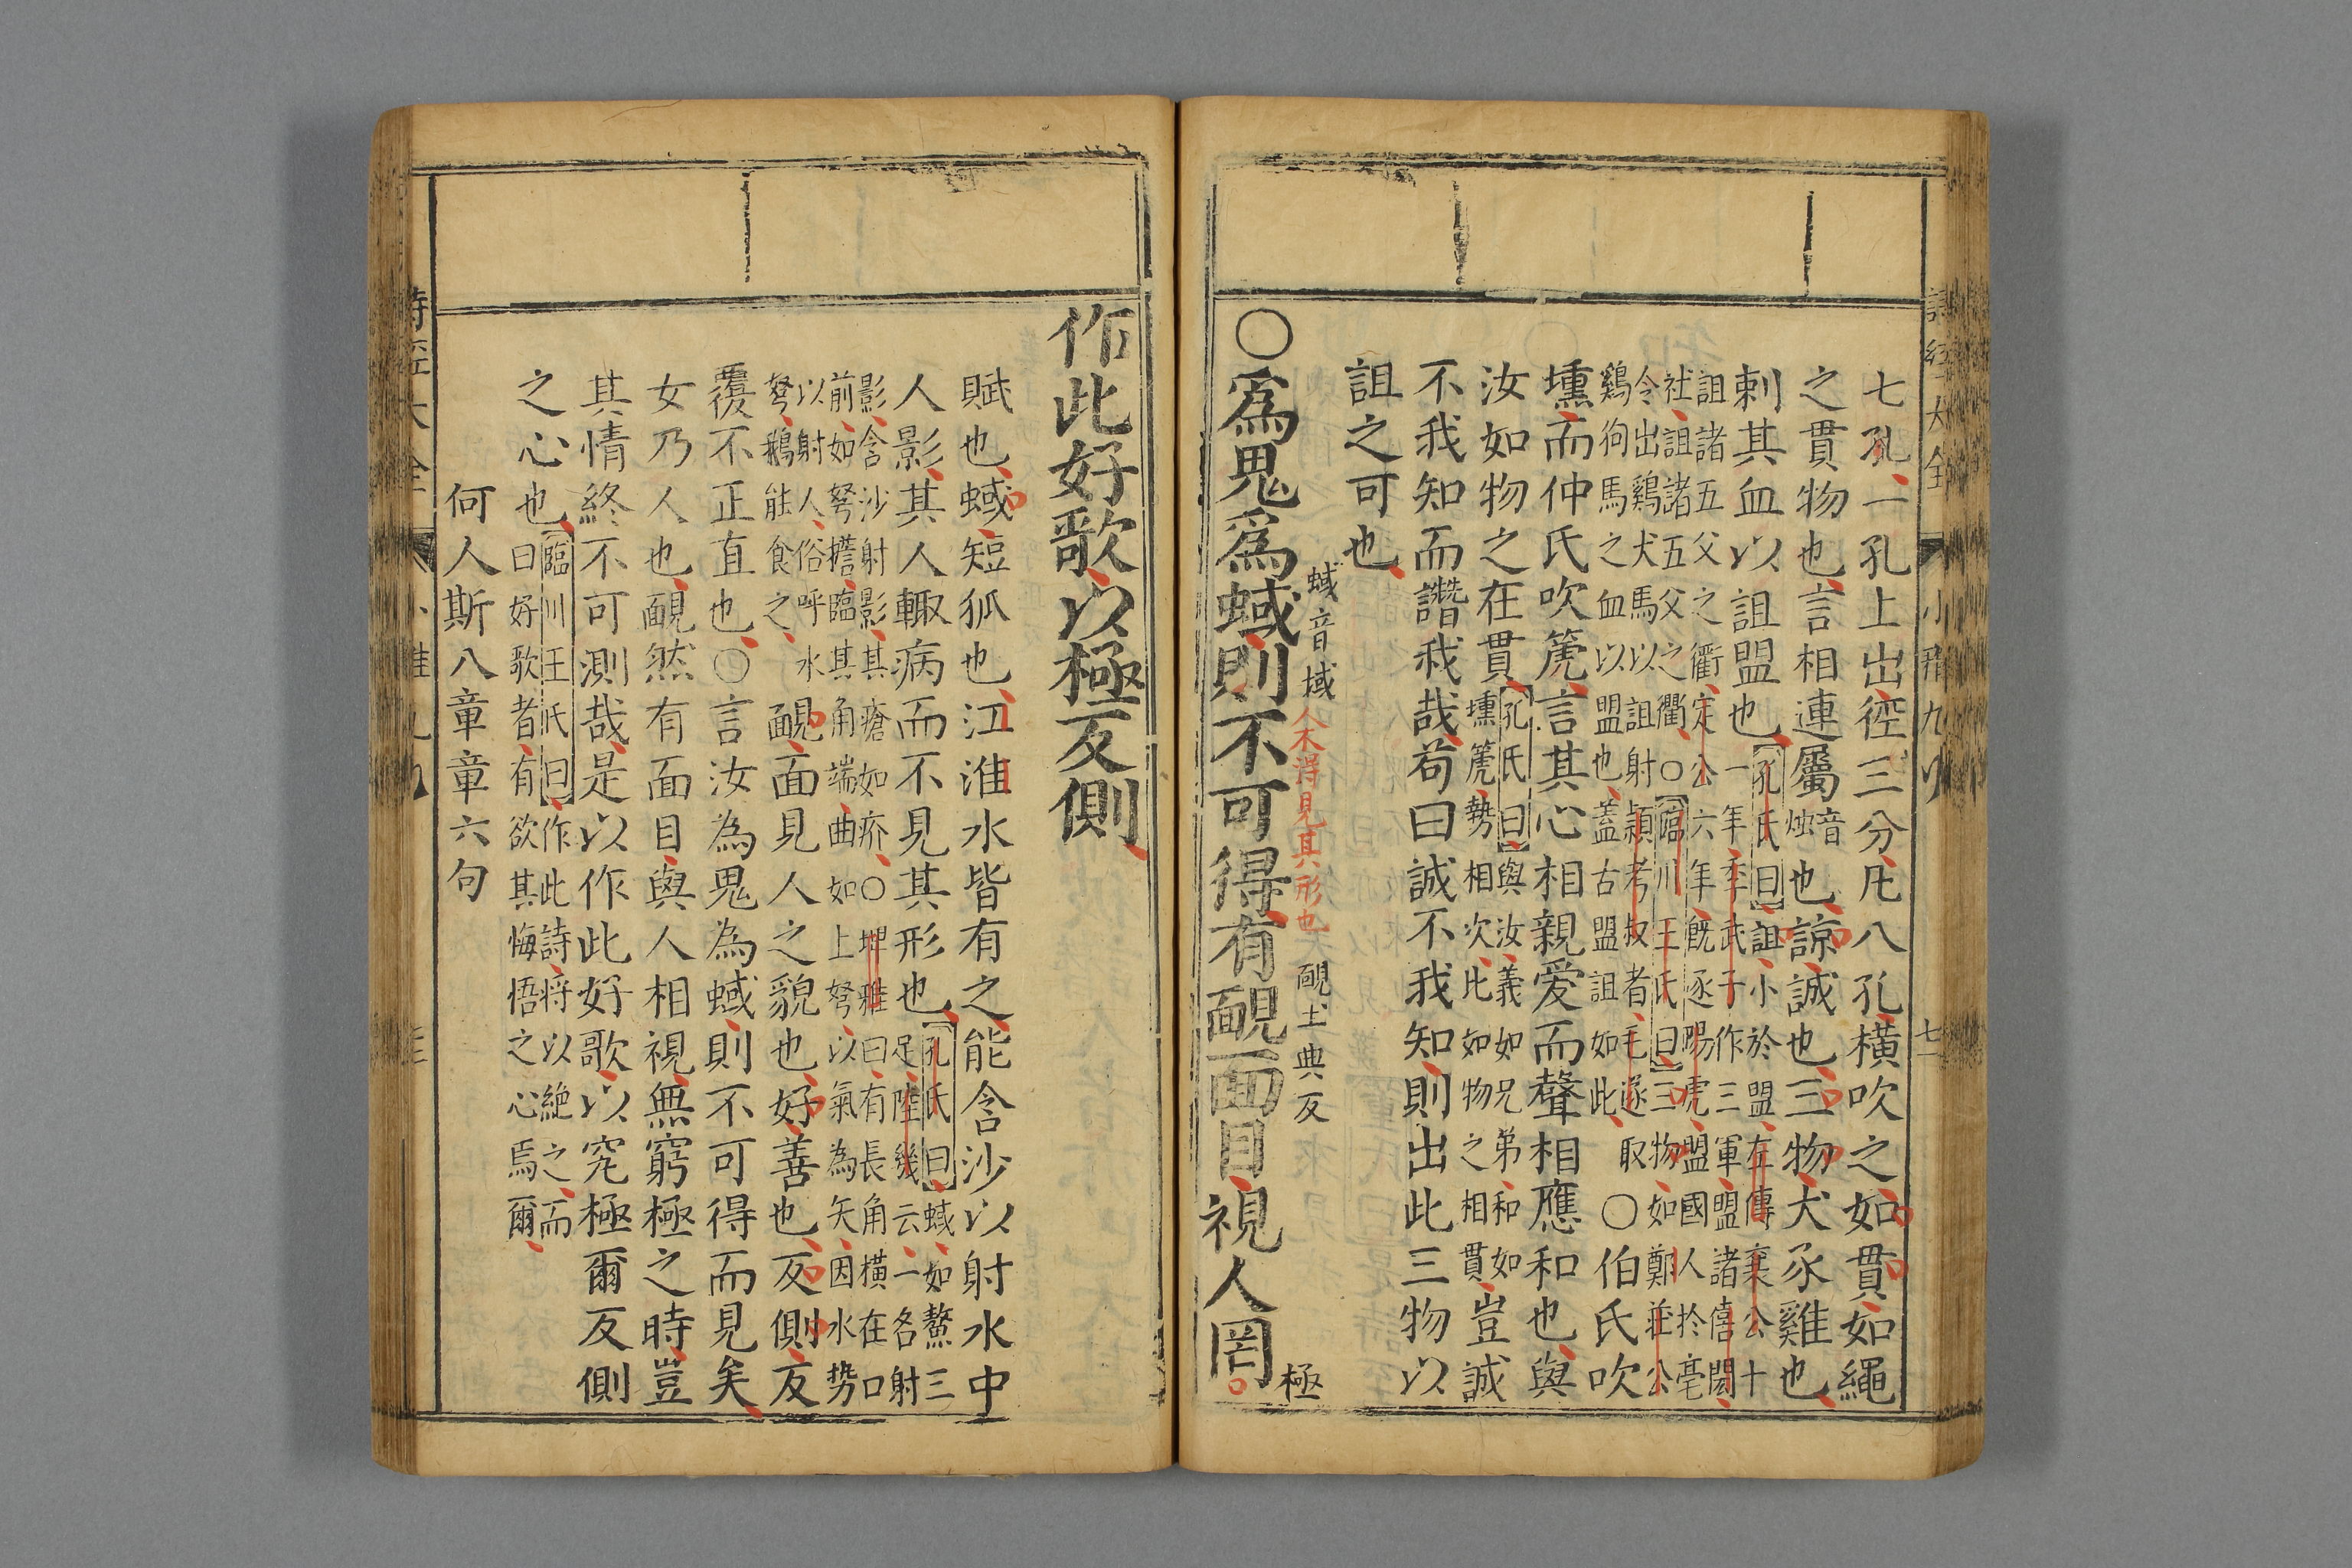 七孔一孔上出徑三分凡八孔橫吹之如貫如繩
之貫物也言相連屬音燭也諒誠也三物犬豕雞也
刺其血以詛盟也孔氏曰詛小於盟左傳襄公十
一年季武子作三軍盟諸僖閎
詛諸五父之衢定公六年既逐陽虎盟國人於亳
社詛諸五父之衢○臨川王氏曰三物如鄭莊公
令出鷄犬馬以詛射潁考叔者毛遂取
鷄狗馬之血以盟也蓋古盟詛如此○伯氏吹
壎而仲氏吹篪言其心相親爱而聲相應和也與
汝如物之在貫孔氏曰與汝義如兄弟和如
壎篪勢相次比如物之相貫豈誠
不我知而譖我哉苟曰誠不我知則出此三物以
詛之可也
○為鬼為蜮則不可得有靦面目視人罔
蜮音域
人不得見其形也
靦土典反
極
作此好歌以極反側
賦也蜮短狐也江淮水皆有之能含沙以射水中
人影其人輙病而不見其形也孔氏曰蜮如鱉三
足陸幾云一名射
影含沙射影其瘡如疥○埤雅曰有長角橫在口
前如弩擔臨其角端曲如上弩以氣為矢因水势
以射人俗呼水
弩鵝能食之靦面見人之貌也好善也反側反
覆不正直也○言汝為鬼為蜮則不可得而見矣
女乃人也靦然有面目與人相視無窮極之時豈
其情終不可測哉是以作此好歌以究極爾反側
之心也臨川王氏曰作此詩將以絕之而
曰好歌者有欲其悔悟之心焉爾
何人斯八章章六句
詩經大全
小雅